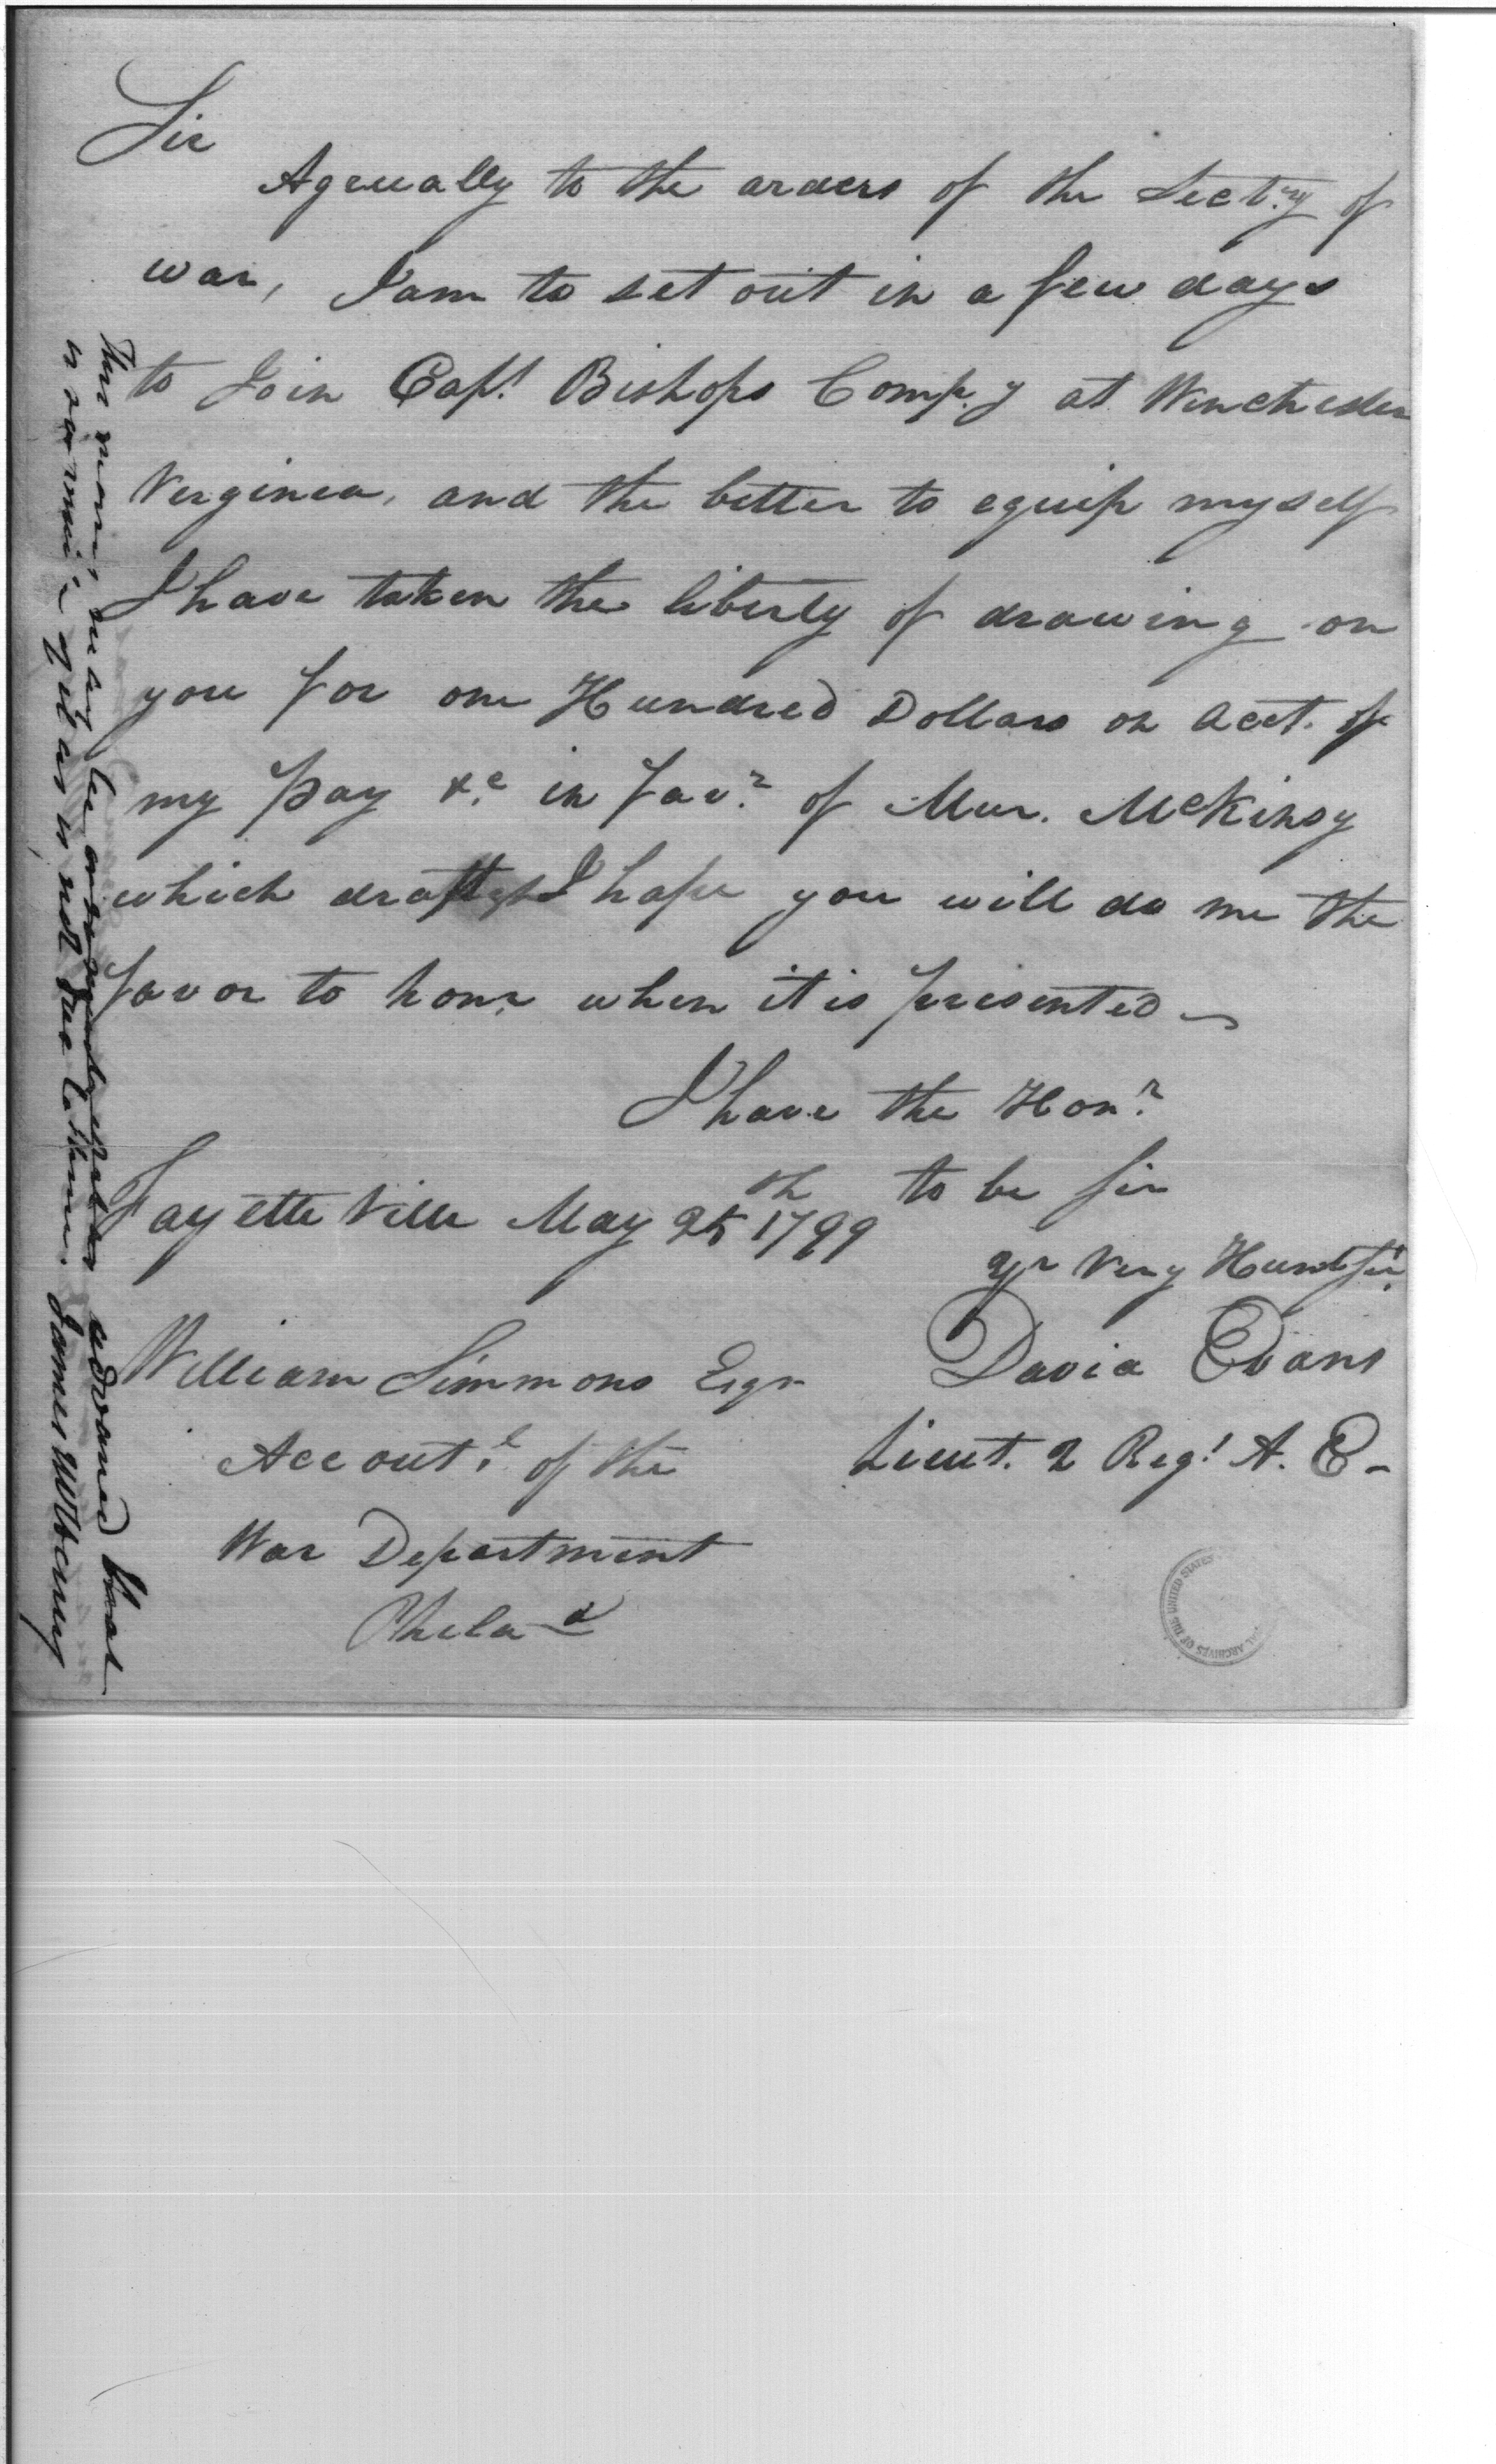 Sir
Agreeably to the orders of the Sect.ry of
war, I am to set out in a few days
to Join Capt. Bishops Comp.y at Winchester
Virginia, and the better to equip myself
I have taken the liberty of drawing on
you for one Hundred Dollars on Acct. of
my pay &c in favr. of Mur. McKinsy
which draft I hope you will do me the
favor to honr. when it is presented
I have the Honr.
to be Sir
Fayette Ville May 25th 1799
yr Very Humbl Sert.
David Evans
Lieut. 2 Regt. A. E -
William Simmons Esqr
Accountt. of the
War Department
Philad
may be advanced but
is not due to him. James McHenry
NAL ARCHIVES OF THE UNITED STATES